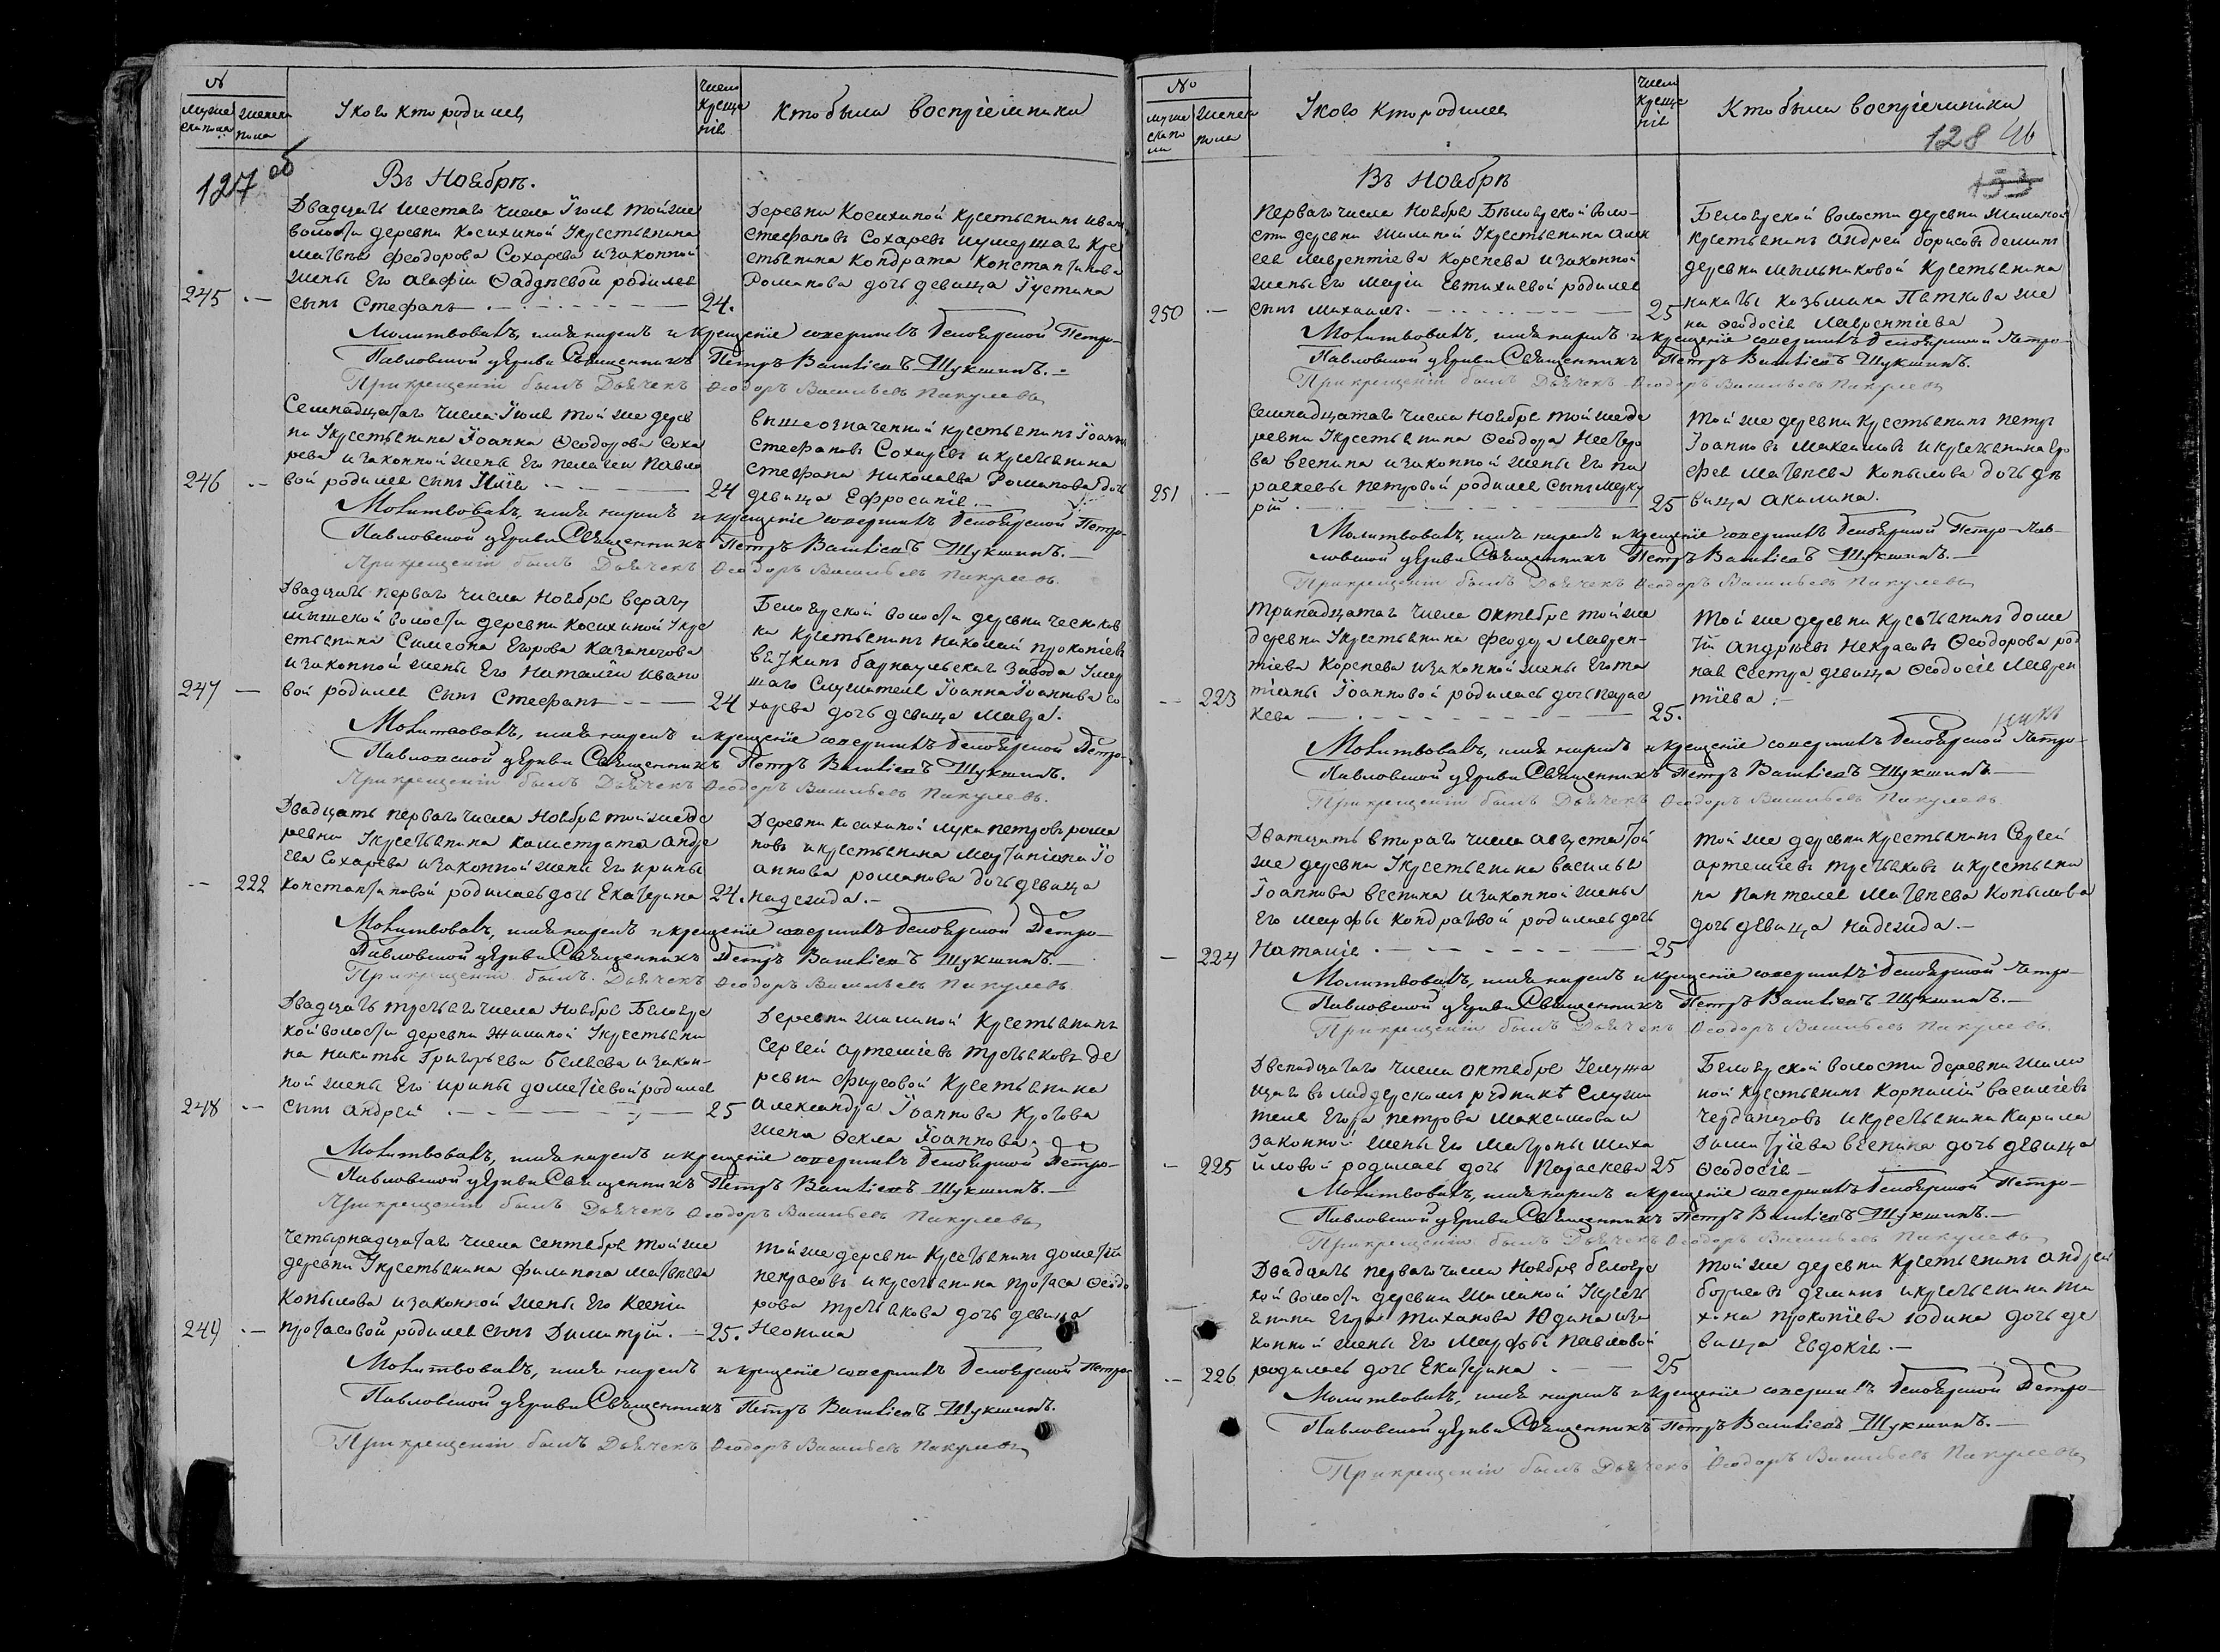 №
мужеска пола
женска пола
У кого кто родился
число крещенія
Кто были воспріемники
127 об
Въ Ноябрѣ.
Двадцать шестаго числа Іюля той же
волости деревни Косихиной Укрестьянина
матвѣя феодорова Сохарева изаконной
жены Его агафіи Фадѣевой родился
245 сынъ Стефанъ 24.
деревни Косихиной крестьянинъ иванъ
стефановъ Сохаревъ иумершаго кре
стьянина Кондрата Константинова
Романова дочь девица Іустина
Молитвовалъ, имя нарекъ и крещеніе совершилъ белоярской Петро-
Павловской церкви Священникъ Петръ Васильевъ Шукшинъ.
При крещеніи былъ Дьячекъ Ѳеодоръ Васильевъ Пакулевъ
Семнадцатаго числа Іюля той же дерев
ни Укрестьянина Іоанна Ѳеодорова Соха
рева изаконной жены Его пелагеи Павло
246 вой родился сынъ Илія 24
вышеозначенной крестьянинъ Іоаннъ
Стефановъ Сохаревъ и крестьянина
Стефана Николаева Романова дочь
девица Ефросинія
Молитвовалъ, имя нарекъ и крещеніе совершилъ белоярской Петро-
Павловской церкви Священникъ Петръ Васильевъ Шукшинъ.
При крещеніи былъ Дьячекъ Ѳеодоръ Васильевъ Пакулевъ.
Двадцать перваго числа Ноября верхчу
мышской волости деревни Косихиной Укре
стьянина Симеона Егорова Казанцова
изаконной жены Его Наталіи ивано
247 вой родился сынъ Стефанъ 24
Белоярской волости деревни чесноков
ки крестьянинъ Николай прокопіевъ
барнаульскаго завода Умер
шаго Служителя Іоанна Іоаннова Со
харева дочь девица Мавра.
Молитвовалъ, имя нарекъ и крещеніе совершилъ белоярской Петро-
Павловской церкви Священникъ Петръ Васильевъ Шукшинъ.
При крещеніи былъ Дьячекъ Ѳеодоръ Васильевъ Пакулевъ.
Двадцать перваго числа Ноября той же де
ревни Укрестьянина Калистрата андре
ева Сохарева изаконной жены Его ирины
222 константиновой родилась дочь Екатерина 24.
Деревни Косихиной лука петровъ рома
новъ икрестьянина Мартиніана Іо
аннова романова дочь девица
надежда.
Молитвовалъ, имя нарекъ и крещеніе совершилъ белоярской Петро-
Павловской церкви Священникъ Петръ Васильевъ Шукшинъ.
При крещеніи былъ Дьячекъ Ѳеодоръ Васильевъ Пакулевъ
Двадцать третьяго числа Ноября Белоярс
кой волости деревни Жилиной Укрестьяни
на никиты Григорьева беляева изакон-
ной жены Его ирины дометіевой родился
248 сынъ андрей 25
Деревни жилиной Крестьянинъ
Сергей артеміевъ третьяковъ де
ревни фирсовой Крестьянина
александра Іоаннова Кротова
жена Ѳекла Іоаннова.
Молитвовалъ, имя нарекъ и крещеніе совершилъ белоярской Петро-
Павловской церкви Священникъ Петръ Васильевъ Шукшинъ.
При крещеніи былъ Дьячекъ Ѳеодоръ Васильевъ Пакулевъ
четырнадцатаго числа сентября той же
деревни Укрестьянина филиппа матвѣева
Копылова изаконной жены Его Ксеніи
249 протасовой родился сынъ Димитрій. 25.
той же деревни Крестьянинъ дометій
некрасовъ икрестьянина протаса Ѳеодо
рова третьякова дочь девица
Неонила
Молитвовалъ, имя нарекъ и крещеніе совершилъ белоярской Петро-
Павловской церкви Священникъ Петръ Васильевъ Шукшинъ.
При крещеніи былъ Дьячекъ Ѳеодоръ Васильевъ Пакулевъ
№
мужеска пола
женска пола
У кого кто родился
число крещенія
Кто были воспріемники
128 46
153
Въ Ноябрѣ
перваго числа Ноября Бѣлоярской воло-
сти деревни жилиной Укрестьянина алек
сея лаврентіева Коренева изаконной
жены Его маріи Евтихиевой родился
250 сынъ михаилъ. 25
Белоярской волости деревни жилиной
крестьянинъ андрей борисовъ деминъ
деревни мельниковой Крестьянина
никиты козьмина Пяткова же
на Ѳеодосія лаврентіева
Молитвовалъ, имя нарекъ и крещеніе совершилъ белоярской Петро-
Павловской церкви Священникъ Петръ Васильевъ Шукшинъ.
При крещеніи былъ Дьячекъ Ѳеодоръ Васильевъ Пакулевъ
Семнадцатаго числа Ноября той же де
ревни Укрестьянина Ѳеодора
ва веснина изаконной жены Его па
251 раскевы петровой родился сынъ мерку
рій 25
той же деревни крестьянинъ петръ
Іоанновъ максимовъ икрестьянина еро
фея матвѣева копылова дочь дѣ
вица акилина.
Молитвовалъ, имя нарекъ и крещеніе совершилъ белоярской Петро-Пав-
ловской церкви Священникъ Петръ Васильевъ Шукшинъ.
При крещеніи былъ Дьячекъ Ѳеодоръ Васильевъ Пакулевъ
тринадцатаго числа октября той же
деревни Укрестьянина феодора лаврен-
тіева Коренева изаконной жены Его та
223 тіаны Іоанновой родилась дочь парас
кева 25.
той же деревни крестьянинъ доме
тій андреевъ некрасовъ Ѳеодорова род
ная сестра девица Ѳеодосія лаврен
тіева
Молитвовалъ, имя нарекъ и крещеніе совершилъ белоярской Петро-
Павловской церкви Священникъ Петръ Васильевъ Шукшинъ.
При крещеніи былъ Дьячекъ Ѳеодоръ Васильевъ Пакулевъ.
Дватцать втораго числа августа той
же деревни Укрестьянина василья
Іоаннова веснина изаконной жены
Его марфы кондратьевой родилась дочь
224 Наталія 25
той же деревни крестьянинъ Сергей
артеміевъ третьяковъ икрестьяни
на пантелея матвѣева Копылова
дочь девица надежда.
Молитвовалъ, имя нарекъ и крещеніе совершилъ белоярской Петро-
Павловской церкви Священникъ Петръ Васильевъ Шукшинъ.
При крещеніи былъ Дьячекъ Ѳеодоръ Васильевъ Пакулевъ.
Двенадцатаго числа октября
служи
теля Егора петрова максимова и
законной жены Его матроны миха
225 йловой родилась дочь Параскева 25
Белоярской волости деревни жили
ной крестьянинъ Корнилій васильевъ
черданцовъ икрестьянина Кирила
Димитріева веснина дочь девица
Ѳеодосія
Молитвовалъ, имя нарекъ и крещеніе совершилъ белоярской Петро-
Павловской церкви Священникъ Петръ Васильевъ Шукшинъ.
При крещеніи былъ Дьячекъ Ѳеодоръ Васильевъ Пакулевъ
Двадцать перваго числа Ноября белоярс
кой волости деревни Жилиной Укресть
янина Егора тиханова Юдина иза
конной жены Его Марфы Павловой
226 родилась дочь Екатерина 25
той же деревни крестьянинъ андрей
борисовъ деминъ икрестьянина ти
хана прокопіева юдина дочь де
вица Евдокія.
Молитвовалъ, имя нарекъ и крещеніе совершилъ белоярской Петро-
Павловской церкви Священникъ Петръ Васильевъ Шукшинъ.
При крещеніи былъ Дьячекъ Ѳеодоръ Васильевъ Пакулевъ